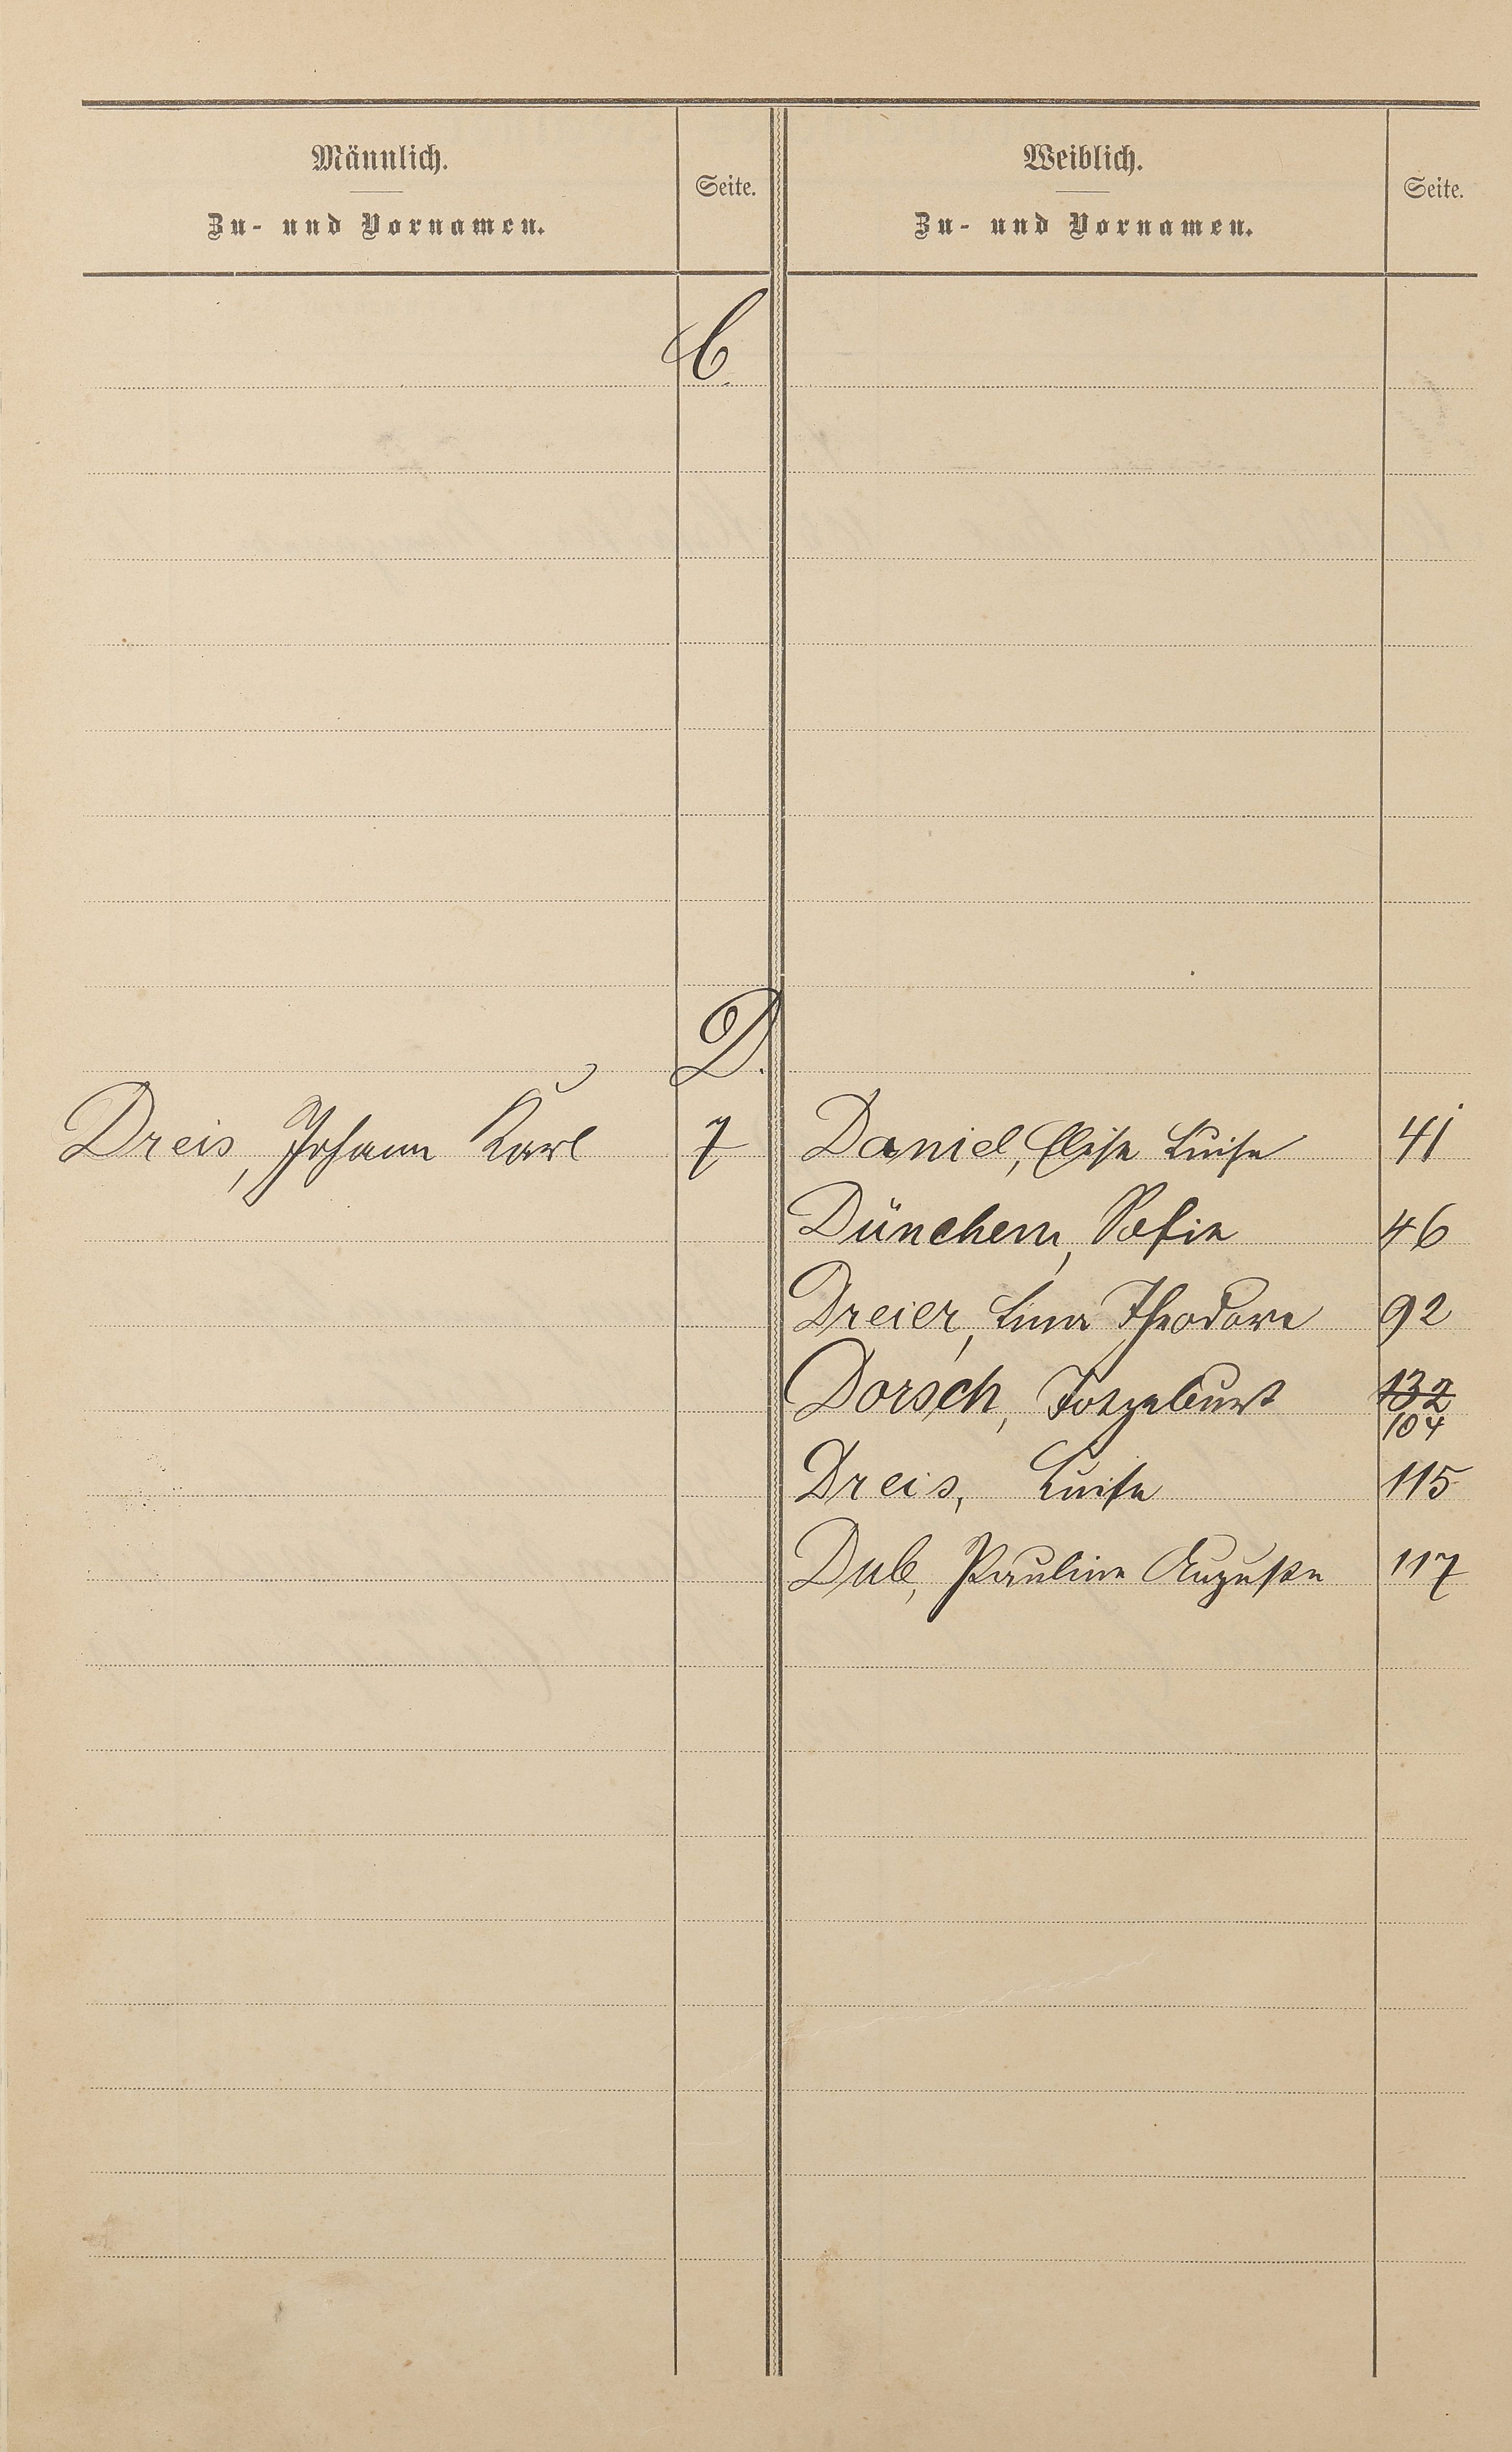 Männlich.
Zu- und Vornamen.
Seite.
Weiblich.
Zu- und Vornamen.
Seite.
C.
D.
Dreis, Johann Karl 7
Daniel, Elise Luise 41
Dünchem, Sofie 46
Dreier, Lina Theodore 92
Dorsch, Totgeburt 132
104
Dreis, Luise 115
Dub, Pauline Auguste 117